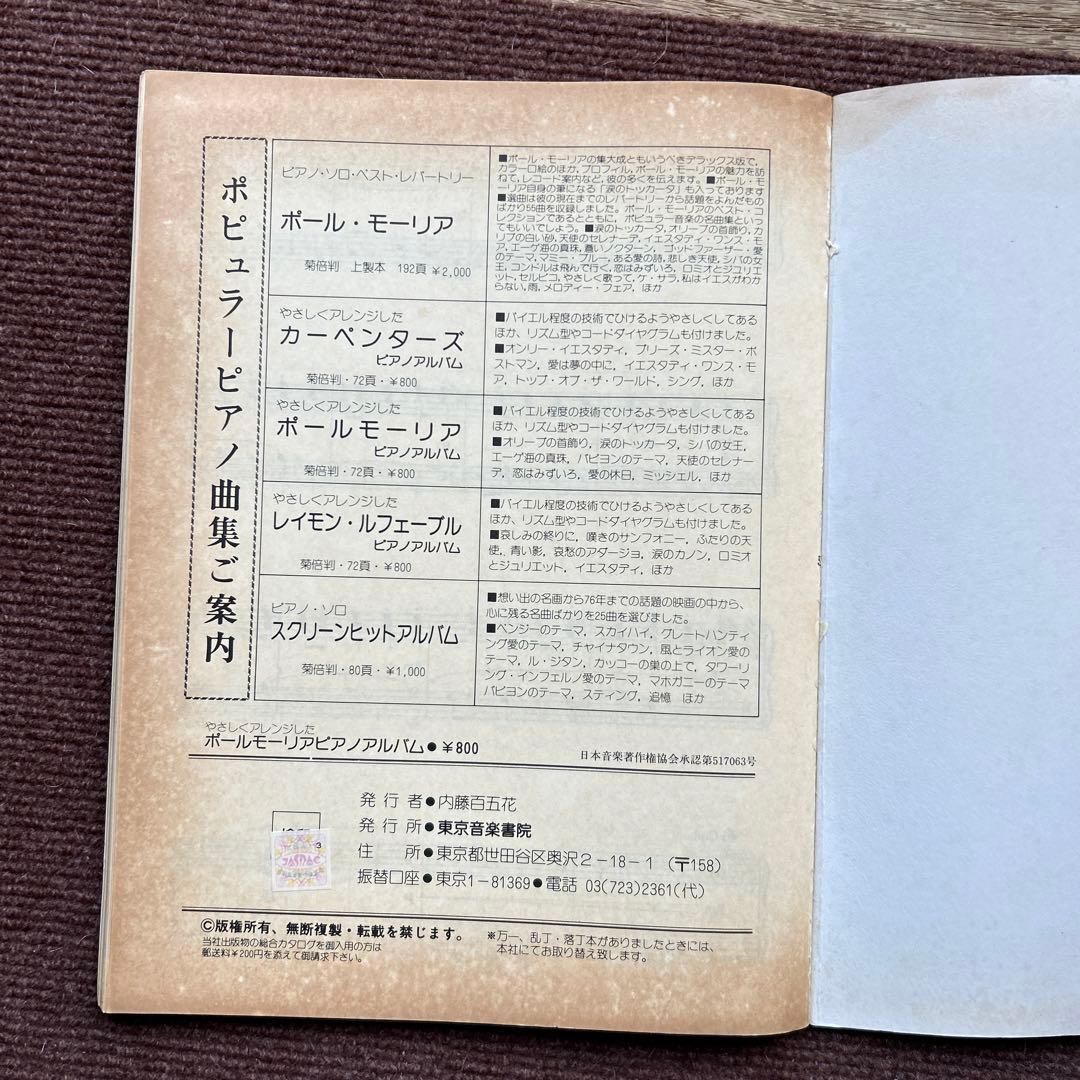 ポピュラーピアノ曲集ご案内
ピアノ・ソロ・ベスト・レパートリー
ポール・モーリア
菊倍判 上製本 192頁 ¥2,000
■ポール・モーリアの集大成ともいうべきデラックス版で,
カラー口絵のほか, プロフィル, ポール・モーリアの魅力を訪
ねて, レコード案内など, 彼の多くを伝えます。■ポール・モ
ーリア自身の筆になる「涙のトッカータ」も入っております
■選曲は彼の現在までのレパートリーから話題をよんだもの
ばかり55曲を収録しました。ポール・モーリアのベスト・コ
レクションであるとともに, ポピュラー音楽の名曲集といっ
てもいいでしょう。■涙のトッカータ, オリーブの首飾り, カ
リブの白い砂, 天使のセレナーデ, イエスタデイ・ワンス・モ
ア, エーゲ海の真珠, 蒼いノクターン, ゴッドファーザー・愛
のテーマ, マミー・ブルー, ある愛の詩, 悲しき天使, シバの女
王, コンドルは飛んで行く, 恋はみずいろ, ロミオとジュリエ
ット, セルピコ, やさしく歌って, ケ・サラ, 私はイエスがわか
らない, 雨, メロディー・フェア, ほか
やさしくアレンジした
カーペンターズ
ピアノアルバム
菊倍判・72頁・¥800
■バイエル程度の技術でひけるようやさしくしてある
ほか, リズム型やコードダイヤグラムも付けました。
■オンリー・イエスタデイ, プリーズ・ミスター・ポ
ストマン, 愛は夢の中に, イエスタデイ・ワンス・モ
ア, トップ・オブ・ザ・ワールド, シング, ほか
やさしくアレンジした
ポールモーリア
ピアノアルバム
菊倍判・72頁・¥800
■バイエル程度の技術でひけるようやさしくしてある
ほか, リズム型やコードダイヤグラムも付けました。
■オリーブの首飾り, 涙のトッカータ, シバの女王,
エーゲ海の真珠, パピヨンのテーマ, 天使のセレナー
デ, 恋はみずいろ, 愛の休日, ミッシェル, ほか
やさしくアレンジした
レイモン・ルフェーブル
ピアノアルバム
菊倍判・72頁・¥800
■バイエル程度の技術でひけるようやさしくしてある
ほか, リズム型やコードダイヤグラムも付けました。
■哀しみの終りに, 嘆きのサンフォニー, ふたりの天
使, 青い影, 哀愁のアダージョ, 涙のカノン, ロミオ
とジュリエット, イエスタデイ, ほか
ピアノ・ソロ
スクリーンヒットアルバム
菊倍判・80頁・¥1,000
■想い出の名画から76年までの話題の映画の中から、
心に残る名曲ばかりを25曲を選びました。
■ベンジーのテーマ, スカイハイ, グレートハンティ
ング愛のテーマ, チャイナタウン, 風とライオン愛の
テーマ, ル・ジタン, カッコーの巣の上で, タワーリ
ング・インフェルノ愛のテーマ, マホガニーのテーマ
パピヨンのテーマ, スティング, 追憶 ほか
やさしくアレンジした
ポールモーリアピアノアルバム●¥800
日本音楽著作権協会承認第517063号
発行者●内藤百五花
発行所●東京音楽書院
住 所●東京都世田谷区奥沢2-18-1 (〒158)
振替口座●東京1-81369●電話 03(723)2361(代)
JASRAC
©版権所有、無断複製・転載を禁じます。
当社出版物の総合カタログを御入用の方は
郵送料¥200円を添えて御請求下さい。
※万一、乱丁・落丁本がありましたときには、
本社にてお取り替え致します。